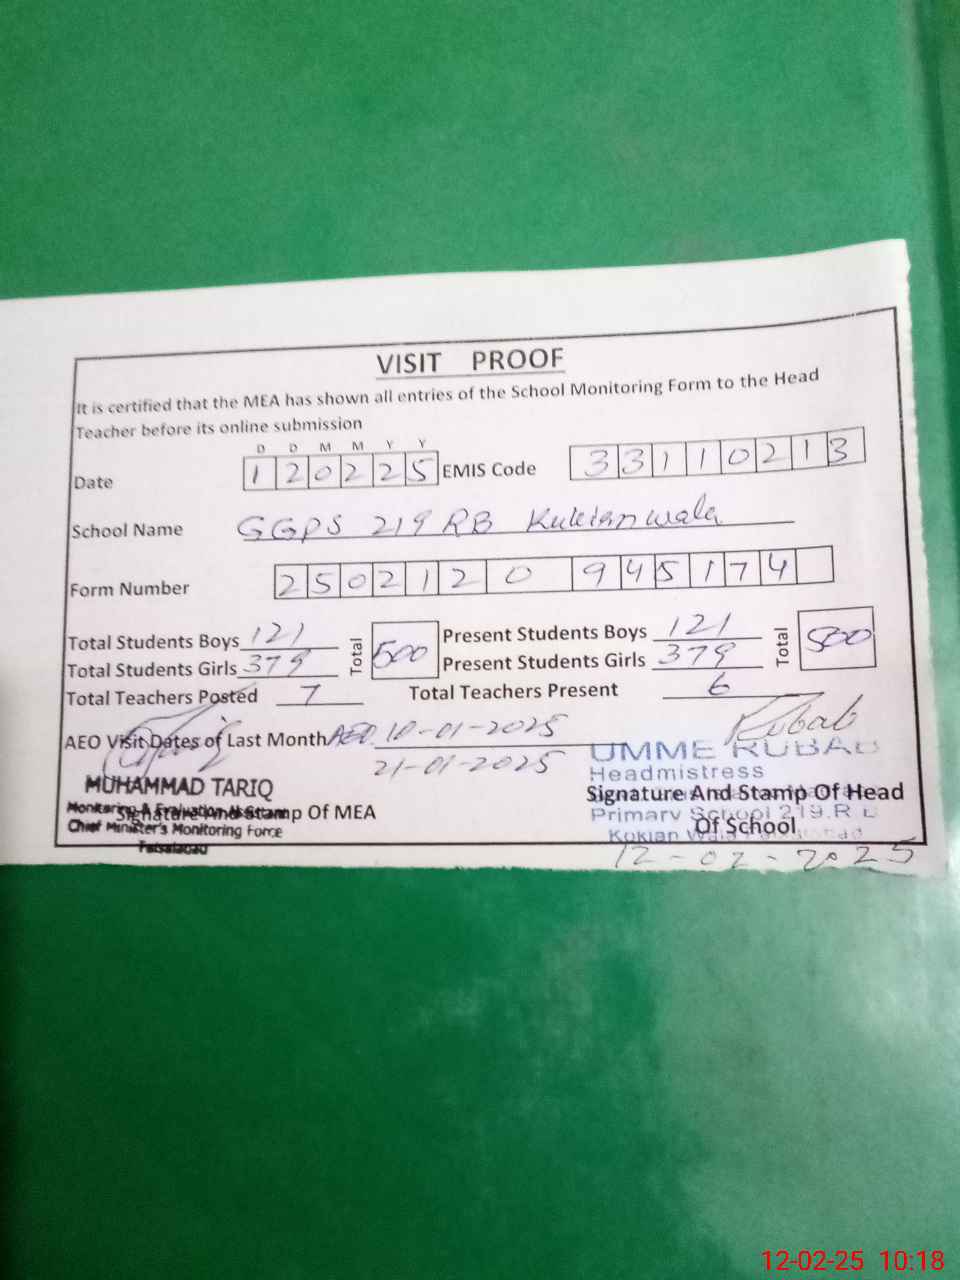 VISIT PROOF
It is certified that the MEA has shown all entries of the School Monitoring Form to the Head
Teacher before its online submission
D D M M Y Y
Date 1 2 0 2 2 5 EMIS Code 3 3 1 1 0 2 1 3
School Name GGPS 219 RB Kukianwala
Form Number 2 5 0 2 1 2 0 9 4 5 1 7 4
Total Students Boys 121 Total 500 Present Students Boys 121 Total 500
Total Students Girls 379 Present Students Girls 379
Total Teachers Posted 7 Total Teachers Present 6
Rubab
AEO Visit Dates of Last Month AEO 10-01-2025
21-01-2025
UMME RUBAB
Headmistress
MUHAMMAD TARIQ
Signature And Stamp Of Head
Monitoring & Evaluation
Signature And Stamp Of MEA
Primary School 219.R B
Chief Minister's Monitoring Force
Of School
Kokian Wala
Faisalabad
12-02-2025
12-02-25 10:18